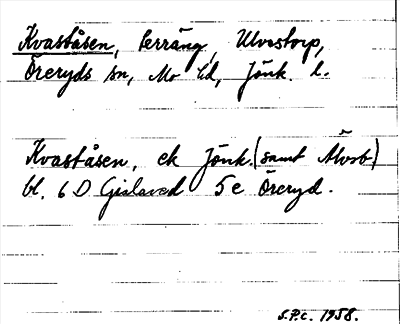 Kvaståsen, terräng, Ulvestorp,
Öreryds sn, Mo hd, Jönk. l.
Kvaståsen, ek Jönk. (samt Älvsb)
bl. 6 D Gislaved 5 e Öreryd.
S.P.c. 1958.